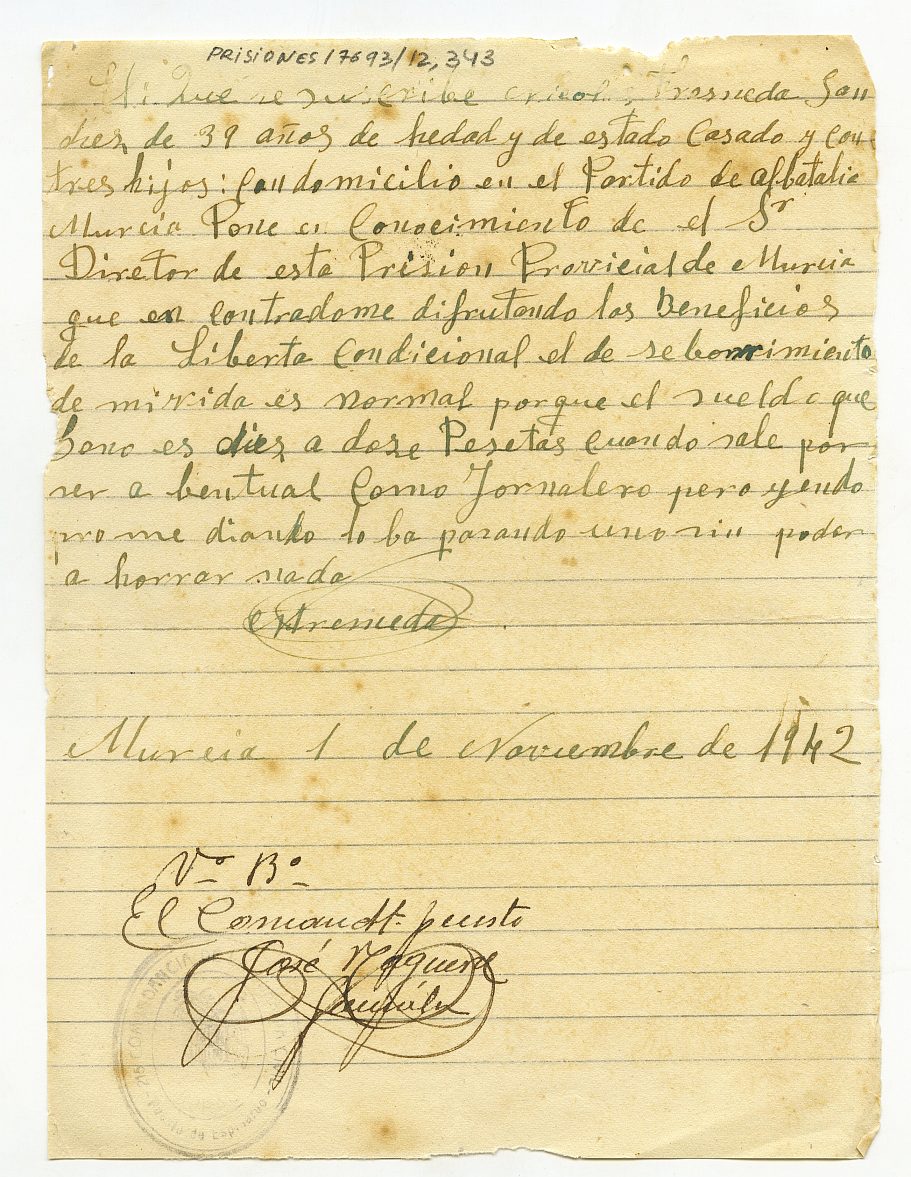 PRISIONES 17693/12, 343
El Que se suscribe Fresneda San
dies, de 39 años de hedad y de estado Casado y con
tres hijos: Con domicilio en el Partido de albatalia
Murcia Pone en Conocimiento de el Sr
Diretor de esta Prision Provicial de Murcia
que en contradome difrutando los Beneficios
de la Liberta Condicional el de sebonrimiento
de mi vida es normal porque el sueldo que
Gano es dies a dose Pesetas cuando sale por
ser a bentual Como Jornalero pero yendo
pro me diando lo ba pasando uno sin poder
a horrar nada
Murcia 1 de Noviembre de 1942
Vº Bº
El Comandt. puesto
José Noguera
COMANDANCIA